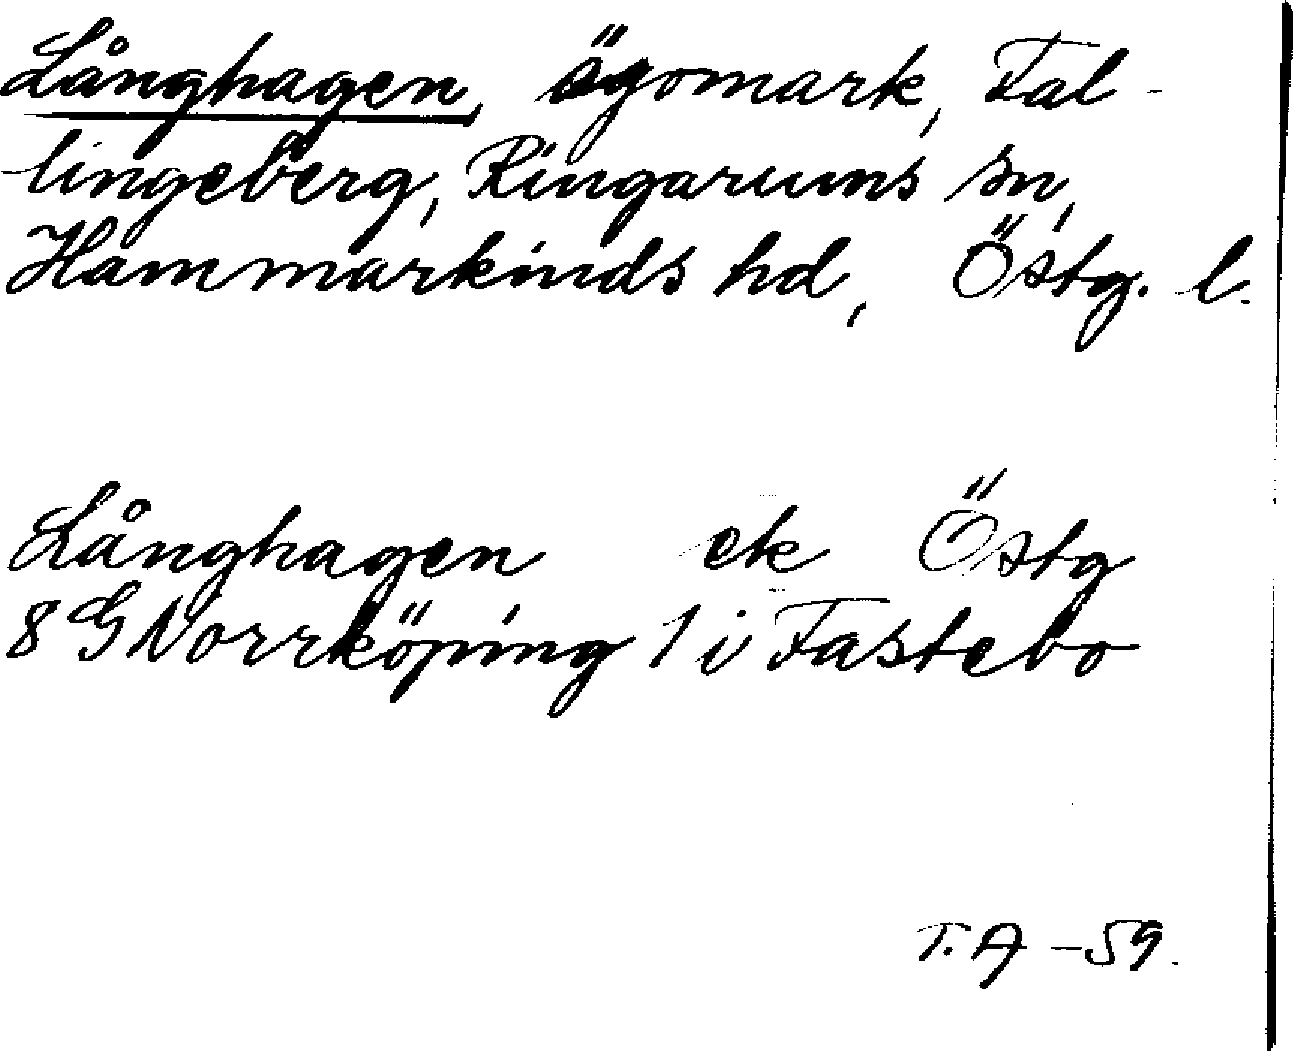 Långhagen, ägomark, Fal-
lingeberg, Ringarums sn,
Hammarkinds hd, Östg. l.
Långhagen ek Östg
8 G Norrköping 1 i Fastebo
T. A -59.